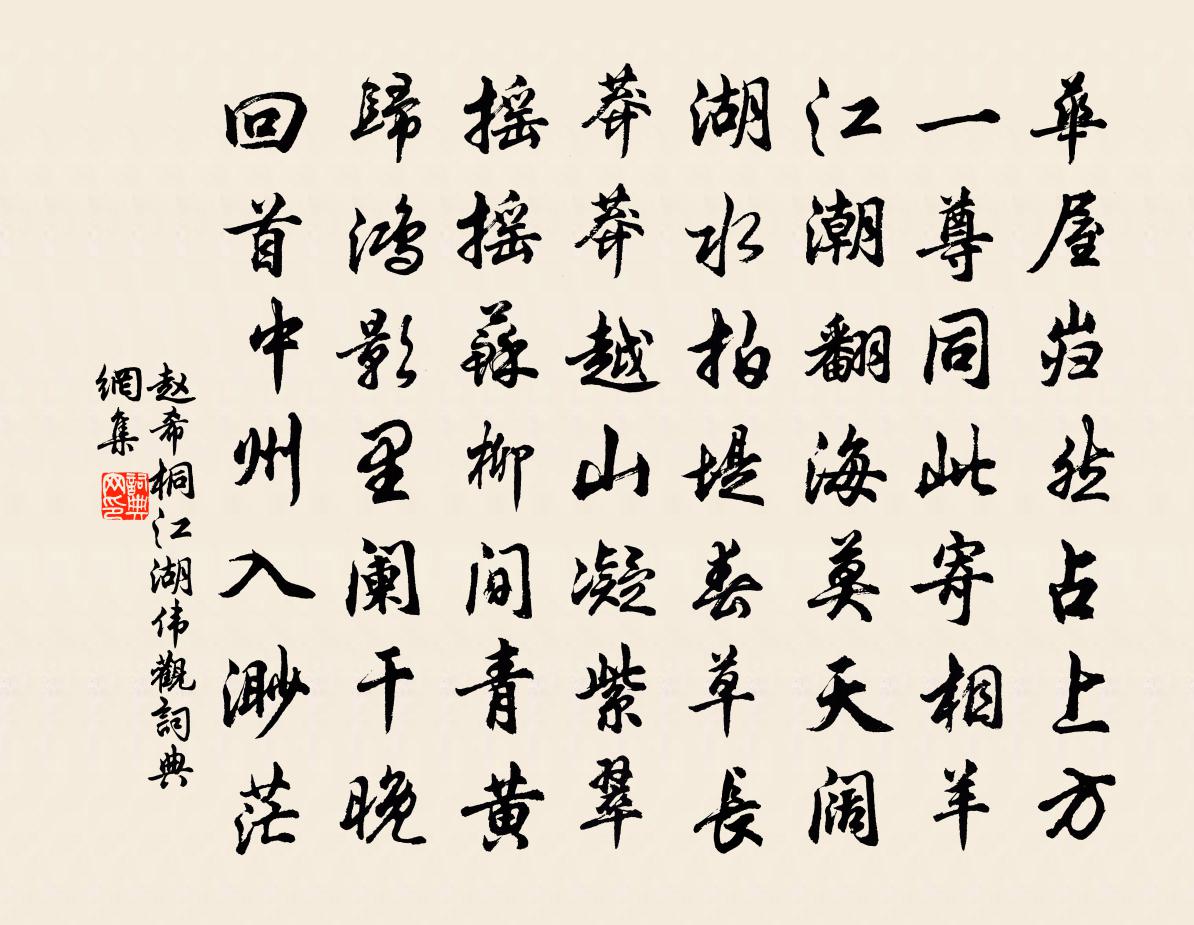 華屋岿然占上方
一尊同此寄相羊
江潮翻海莫天阔
湖水拍堤春草長
莽莽越山凝紫翠
摇摇蘇柳间青黄
歸鸿影里阑干晚
回首中州入渺茫
赵希桐江湖伟觀詞典
網集
詞典
网印